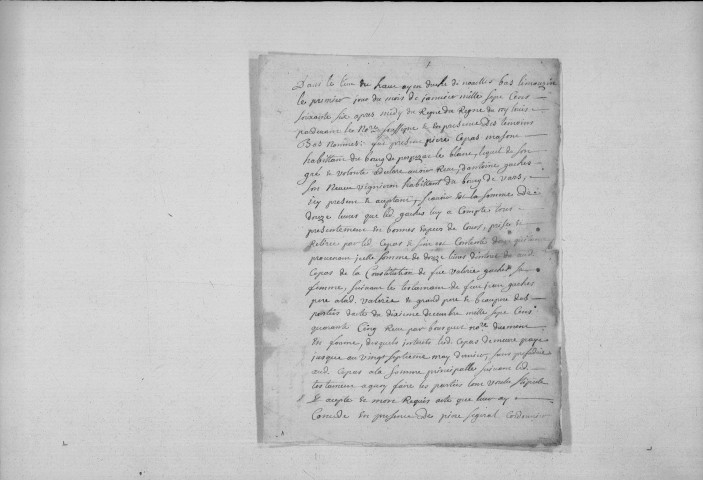 Dans le lieu du haux ayen duché de noailles bas limouzin
le premier jour du mois de janvier mille sept Cens
soixante six apres midy du Regne du Regne de roy louis
pardevant le Nore soussigne & en presence des temoins
Bas nommes; feut presant pierre Cepas masson
habittant du bourg de perpezac le blanc, lequel de son
gré & volonte a declaré avoir Receu d'antoine guches
son Neveu vigneron habittant du bourg de vars,
icy presant & aceptant, scavoir est la somme de
douze livres que led. guches luy a Compté tout
presentement en bonnes especes de Cours, prises &
Retirées par led. Cepas & s'en est Contenté
provenant icelle somme de douze livres d'interet de aud.
Cepas de la Constitution de feue valerie guches sa
femme, suivant le testament de feu jean guches
pere a lad. valerie & grand pere & beaupere des
parties datté du dixieme decembre mille sept Cens
quarante Cinq Receu par bousquet nore duement
en forme, desquels interets led. Cepas demeure payé
jusques au vingt septieme may dernier, sans prejudice
aud. Cepas a la somme principalle suivant led.
testament a quoy faire les parties ont voulu stipulé
& accepté & mont Requis acte que leur ay
Concedé en presence de pierre segeral Cordonnier